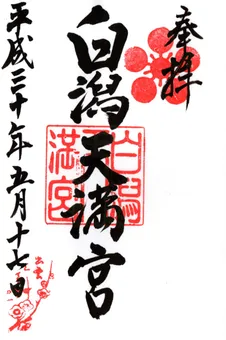 奉拝
白潟天満宮
白潟天満宮
平成三十年五月十七日